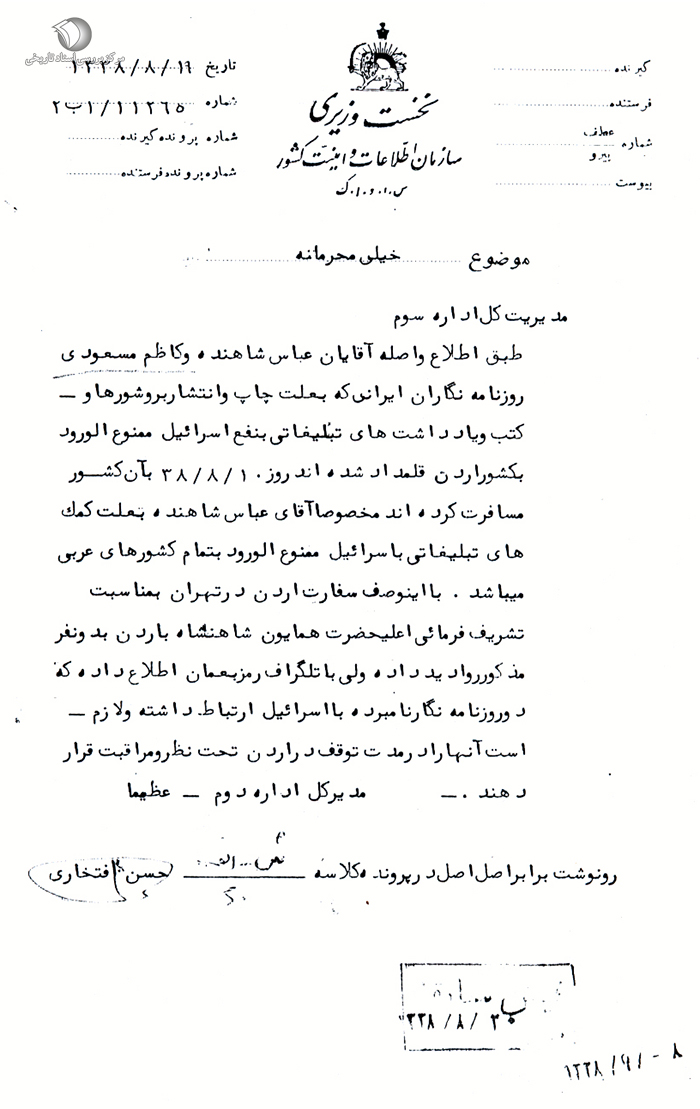 مرکز بررسی اسناد تاریخی
نخست وزیری
سازمان اطلاعات و امنیت کشور
س.ا.و.ا.ک
تاریخ ۱۳۳۸/۸/۱۶
شماره ۱۱۲۶۵/۲۱ب
شماره پرونده گیرنده
شماره پرونده فرستنده
گیرنده
فرستنده
شماره عطف
پیرو
پیوست
موضوع خیلی محرمانه
مدیریت کل اداره سوم
طبق اطلاع واصله آقایان عباس شاهنده وکاظم مسعودی
روزنامه نگاران ایرانی که بعلت چاپ وانتشار بروشورها و ـ
کتب ویادداشت های تبلیغاتی بنفع اسرائیل ممنوع الورود
بکشور اردن قلمداد شده اند روز ۳۸/۸/۱۰ بآن کشور
مسافرت کرده اند مخصوصا آقای عباس شاهنده بعلت کمک
های تبلیغاتی باسرائیل ممنوع الورود بتمام کشورهای عربی
میباشد . با اینوصف سفارت اردن درتهران بمناسبت
تشریف فرمائی اعلیحضرت همایون شاهنشاه باردن بدونفر
مذکور روادید داده ولی با تلگراف رمز بعمان اطلاع داده که
دوروزنامه نگار نامبرده با اسرائیل ارتباط داشته ولازم ـ
است آنها را درمدت توقف در اردن تحت نظر ومراقبت قرار
دهند .ـ مدیرکل اداره دوم ـ عظیما
رونوشت برابر اصل اصل در پرونده کلاسه حسن افتخاری
۸ - ۱۳۳۸/۹/